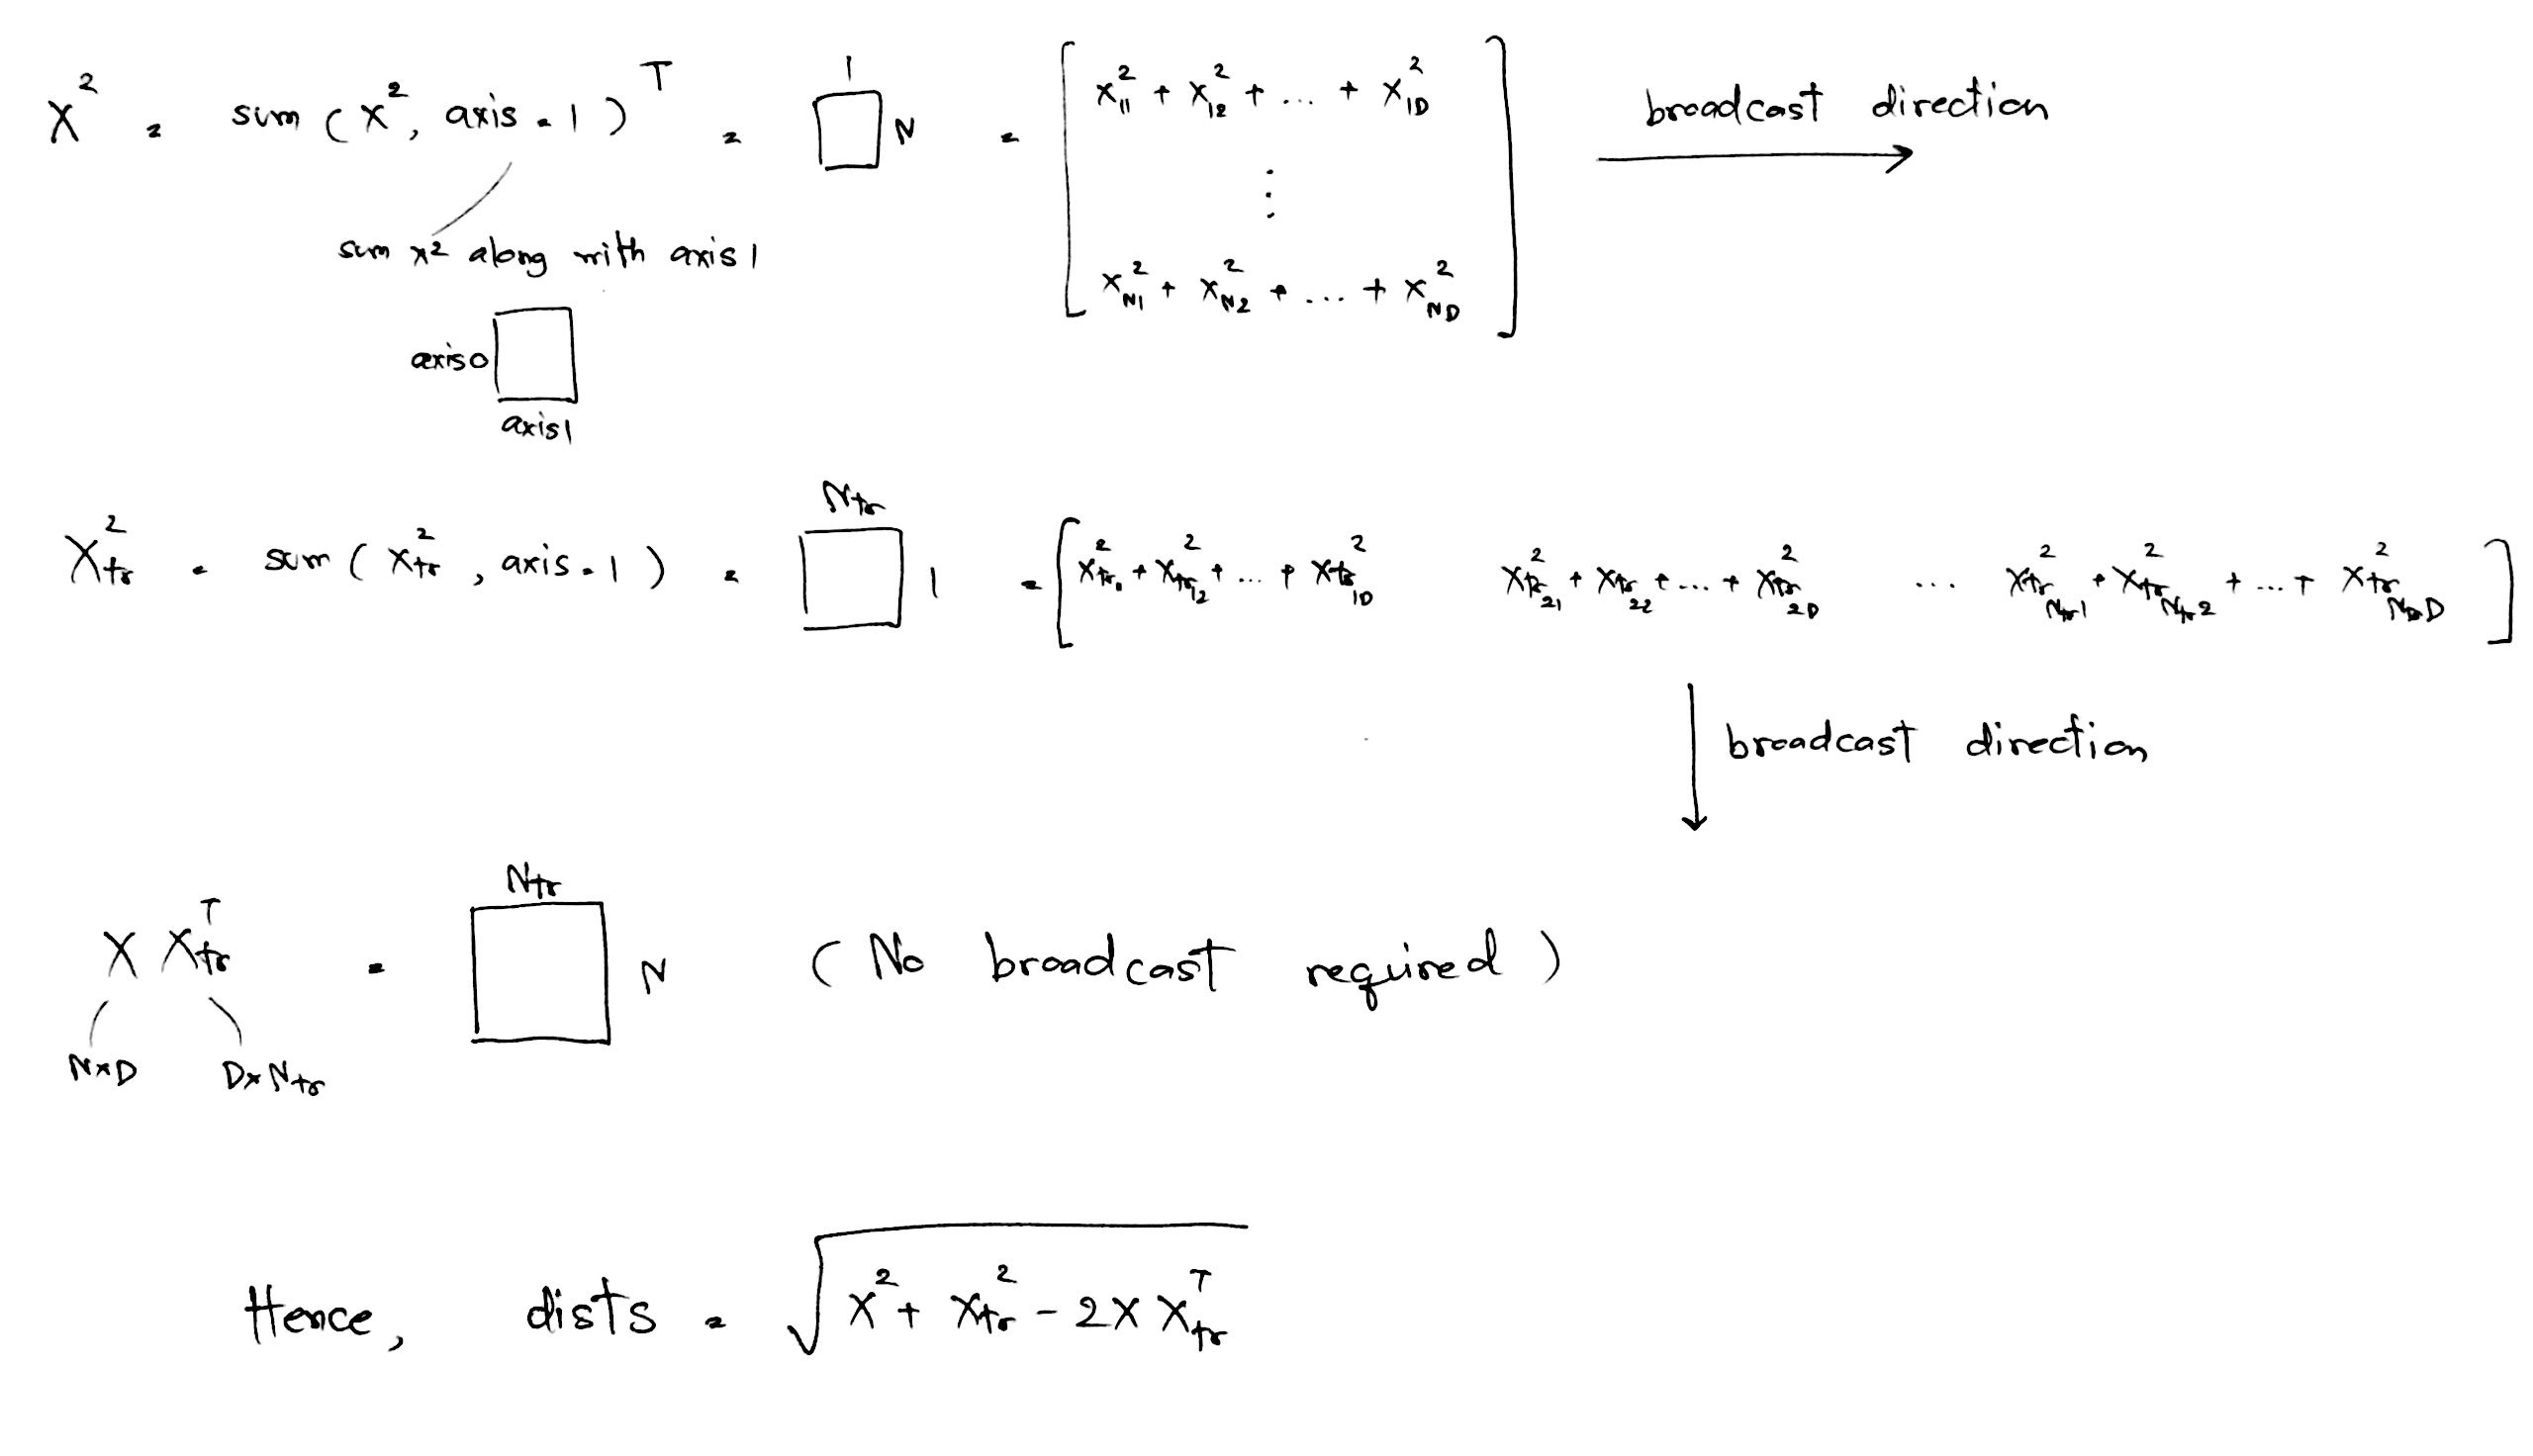 X² = sum (X², axis = 1)ᵀ = 1 N = [ X₁₁² + X₁₂² + ... + X₁D² broadcast direction
⋮
sum x² along with axis 1
X_N1² + X_N2² + ... + X_ND² ]
axis 0
axis 1
N_tr
X_tr² = sum ( X_tr², axis = 1 ) = 1 = [ X_tr₁₁² + X_tr₁₂² + ... + X_tr₁D² X_tr₂₁² + X_tr₂₂ + ... + X_tr₂D² ... X_tr_Ntr1² + X_tr_Ntr2² + ... + X_tr_NtrD² ]
broadcast direction
N_tr
X X_trᵀ = N ( No broadcast required )
N×D D×N_tr
Hence, dists = √(X² + X_tr² - 2X X_trᵀ)